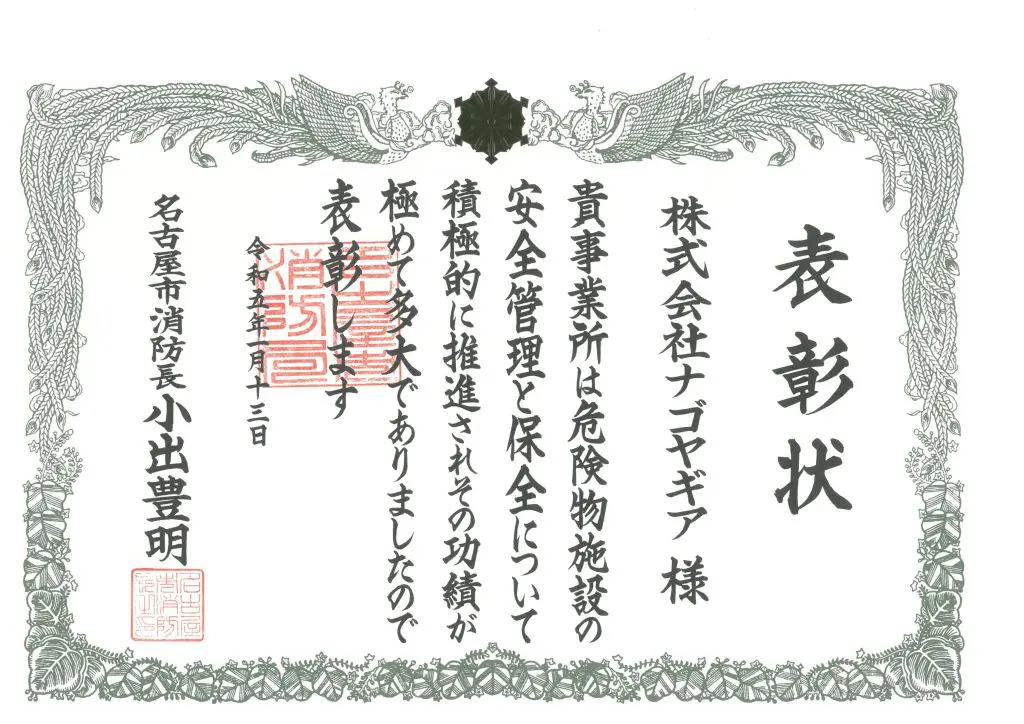 表彰状
株式会社ナゴヤギア 様
貴事業所は危険物施設の
安全管理と保全について
積極的に推進されその功績が
極めて多大でありましたので
表彰します
令和五年一月十三日
名古屋市消防長 小出豊明